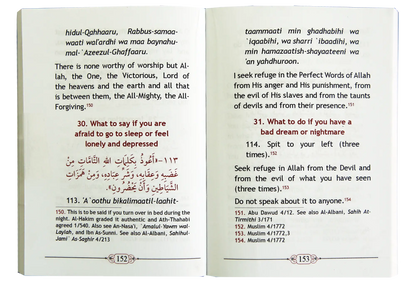 hidul-Qahhaaru, Rabbus-samaa-
waati wal'ardhi wa maa baynahu-
mal-'Azeezul-Ghaffaaru.
There is none worthy of worship but Al-
lah, the One, the Victorious, Lord of
the heavens and the earth and all that
is between them, the All-Mighty, the All-
Forgiving.150
30. What to say if you are
afraid to go to sleep or feel
lonely and depressed
١١٣-«أَعُوذُ بِكَلِمَاتِ اللهِ التَّامَّاتِ مِنْ
غَضَبِهِ وَعِقَابِهِ، وَشَرِّ عِبَادِهِ، وَمِنْ هَمَزَاتِ
الشَّيَاطِينِ وَأَنْ يَحْضُرُونِ».
113. 'A'oothu bikalimaatil-laahit-
150. This is to be said if you turn over in bed during the
night. Al-Hakim graded it authentic and Ath-Thahabi
agreed 1/540. Also see An-Nasa'i, 'Amalul-Yawm wal-
Laylah, and Ibn As-Sunni. See also Al-Albani, Sahihul-
Jami' As-Saghir 4/213
152
taammaati min ghadhabihi wa
'iqaabihi, wa sharri 'ibaadihi, wa
min hamazaatish-shayaateeni wa
'an yahdhuroon.
I seek refuge in the Perfect Words of Allah
from His anger and His punishment, from
the evil of His slaves and from the taunts
of devils and from their presence.151
31. What to do if you have a
bad dream or nightmare
114. Spit to your left (three
times).152
Seek refuge in Allah from the Devil and
from the evil of what you have seen
(three times).153
Do not speak about it to anyone.154
151. Abu Dawud 4/12. See also Al-Albani, Sahih At-
Tirmithi 3/171
152. Muslim 4/1772
153. Muslim 4/1772,3
154. Muslim 4/1772
153